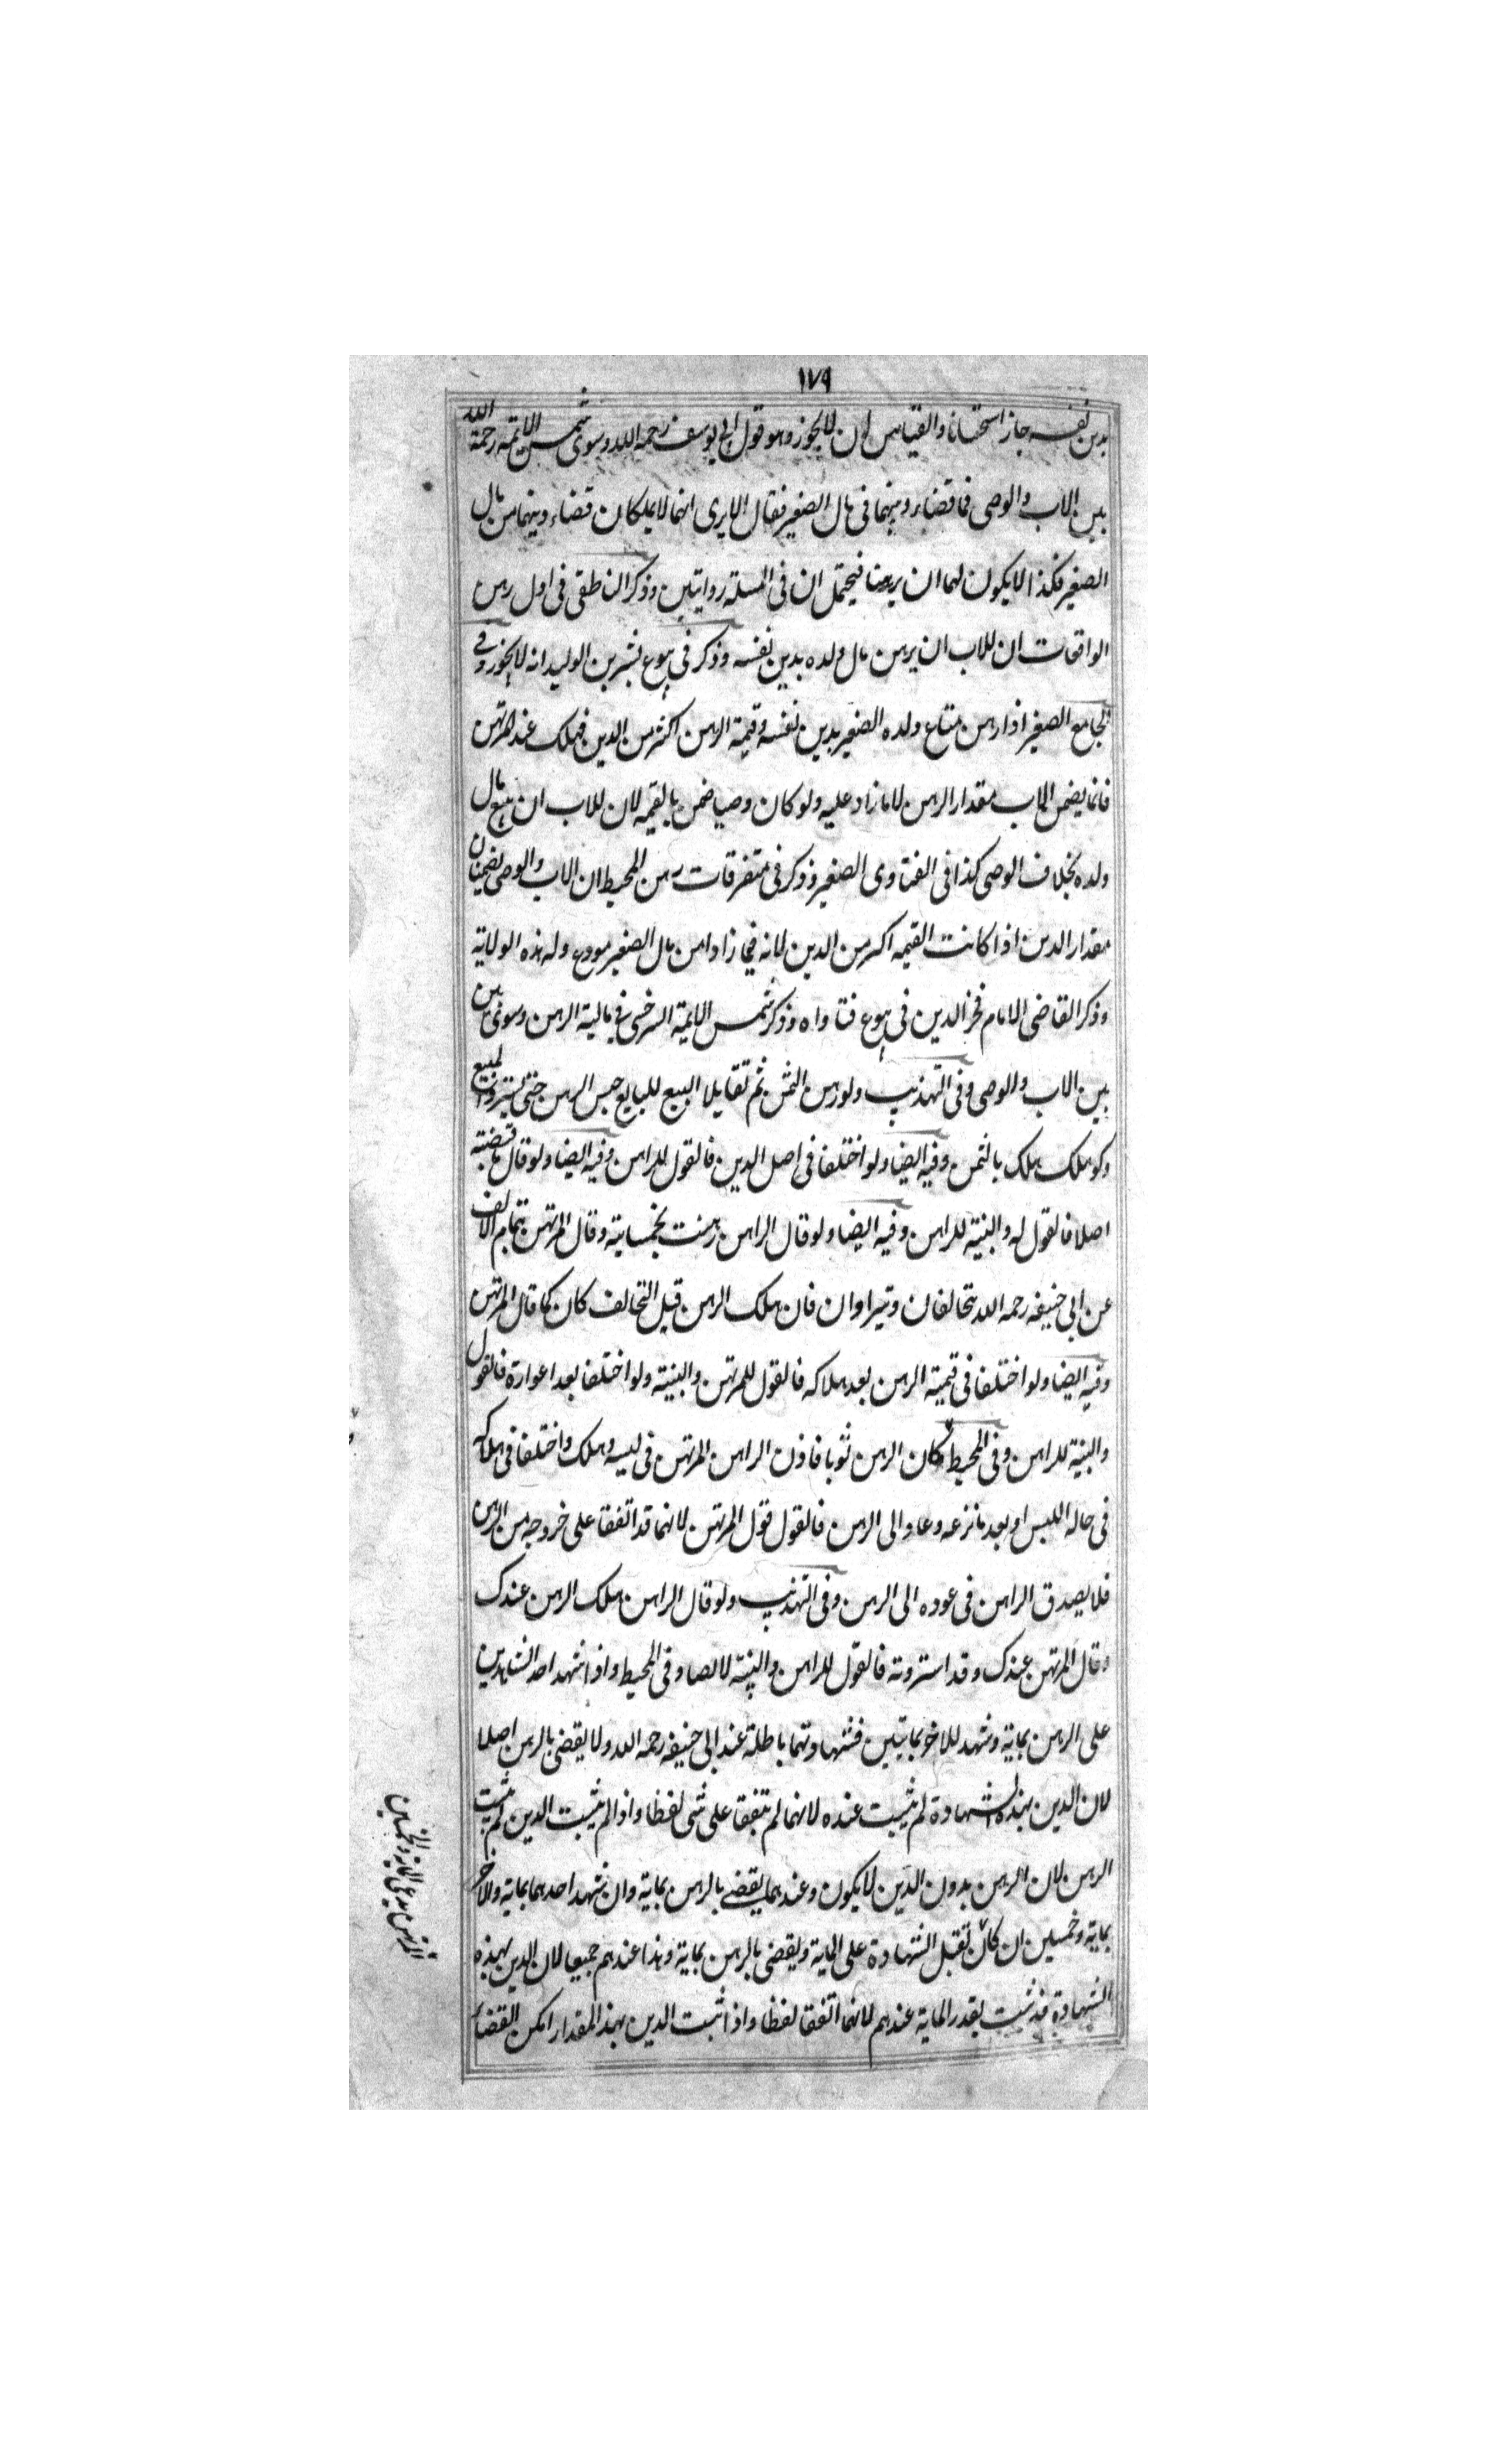 ١٧٩
بدين نفسه جاز استحسانا والقياس ان لا يجوز وهو قول ابي يوسف رحمه الله وسوى شمس الايمة رحمة الله
بين الاب والوصى فى قضاء دينهما فى مال الصغير فقال الا يرى انهما لا يملكان قضاء دينهما من مال
الصغير فكذا لا يكون لهما ان يرهنا فيحتمل ان فى المسئلة روايتين وذكر الناطقى فى اول رهن
الواقعات ان للاب ان يرهن مال ولده بدين نفسه وذكر فى بيوع بشر بن الوليد انه لا يجوز وفى
الجامع الصغير اذا رهن متاع ولده الصغير بدين نفسه وقيمة الرهن اكثر من الدين فهلك عند المرتهن
فانما يضمن الاب مقدار الرهن لا ما زاد عليه ولو كان وصيا ضمن بالقيمه لان للاب ان يبيع مال
ولده بخلاف الوصى كذا فى الفتاوى الصغير وذكر فى متفرقات رهن المحيط ان الاب والوصى يضمنان
مقدار الدين اذا كانت القيمه اكثر من الدين لانه فيما زاد امن مال الصغير مودع وله هذه الولاية
وذكر القاضى الامام فخر الدين فى بيوع فتاواه وذكر شمس الايمة السرخسى فى مالية الرهن وسوى بين
بين الاب والوصى وفى التهذيب ولو رهن الثمن ثم تقايلا البيع للبايع حبس الرهن حتى يسترد المبيع
ولو هلك هلك بالثمن وفيه ايضا ولو اختلفا فى اصل الدين فالقول للراهن وفيه ايضا ولو قال ما قبضته
اصلا فالقول له والبينة للراهن وفيه ايضا ولو قال الراهن رهنت بخمساية وقال المرتهن بتمام الالف
عن ابى حنيفه رحمه الله يتحالفان ويترادان فان هلك الرهن قبل التحالف كان كما قال المرتهن
وفيه ايضا ولو اختلفا فى قيمة الرهن بعد هلاكه فالقول للمرتهن والبينة ولو اختلفا بعد اعواره فالقول
والبينة للراهن وفى المحيط كان الرهن ثوبا فاذن الراهن المرتهن فى لبسه وهلك واختلفا فى هلاكه
فى حالة اللبس او بعد ما نزعه وعاد الى الرهن فالقول قول المرتهن لانهما قد اتفقا على خروجه من الرهن
فلا يصدق الراهن فى عوده الى الرهن وفى التهذيب ولو قال الراهن هلك الرهن عندك
وقال المرتهن عندك وقد استرددته فالقول للراهن والبينة له ايضا وفى المحيط واذا شهد احد الشاهدين
على الرهن بماية وشهد للاخر بمايتين فشهادتهما باطلة عند ابى حنيفه رحمه الله ولا يقضى بالرهن اصلا
لان الدين بهذه الشهادة لم يثبت عنده لانهما لم يتفقا على شى لفظا واذا لم يثبت الدين لم يثبت
الرهن لان الرهن بدون الدين لا يكون وعندهما يقضى بالرهن بماية وان شهد احدهما بماية والاخر
بماية وخمسين ان كان تقبل الشهادة على الماية ويقضى بالرهن بماية وهذا عندهم جميعا لان الدين بهذه
الشهادة قد ثبت بقدر الماية عندهم لانهما اتفقا لفظا واذا ثبت الدين بهذا المقدار امكن القضاء
المرتهن يدعى الماية والخمسين